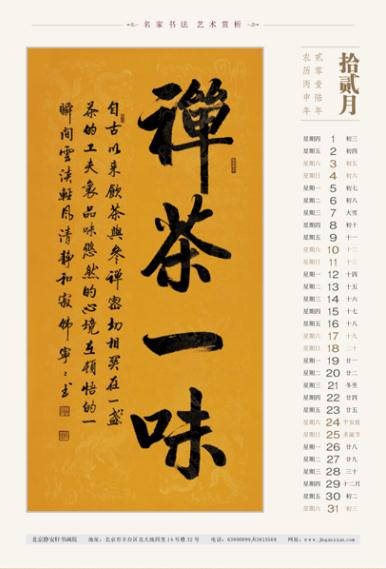 名家书法 艺术赏析
拾贰月
贰零壹陆年
农历丙申年
禪茶一味
自古以来飲茶與参禪密切相契在一盏
茶的工夫裏品味悠然的心境在頓悟的一
瞬间雲淡輕風清靜和寂
星期四 1 初三
星期五 2 初四
星期六 3 初五
星期日 4 初六
星期一 5 初七
星期二 6 初八
星期三 7 大雪
星期四 8 初十
星期五 9 十一
星期六 10 十二
星期日 11 十三
星期一 12 十四
星期二 13 十五
星期三 14 十六
星期四 15 十七
星期五 16 十八
星期六 17 十九
星期日 18 二十
星期一 19 廿一
星期二 20 廿二
星期三 21 冬至
星期四 22 廿四
星期五 23 廿五
星期六 24 平安夜
星期日 25 圣诞节
星期一 26 廿八
星期二 27 廿九
星期三 28 三十
星期四 29 十二月
星期五 30 初二
星期六 31 初三
北京静安轩书画院 地址：北京市丰台区北大地四里14号楼32号 电话： 网址：